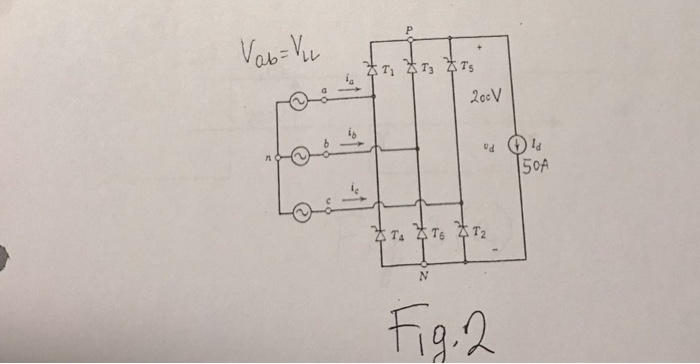 Vab=VLL
P
+
T1
T3
T5
ia
a
200V
ib
b
n
vd
Id
50A
ic
c
T4
T6
T2
-
N
Fig.2